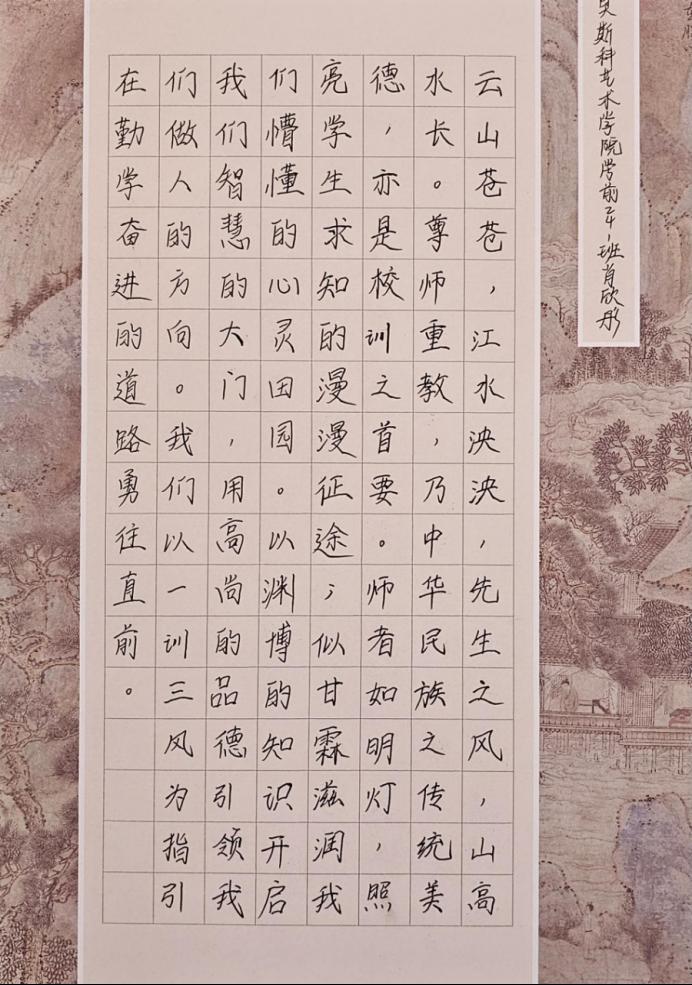 云山苍苍，江水泱泱，先生之风，山高
水长。尊师重教，乃中华民族之传统美
德，亦是校训之首要。师者如明灯，照
亮学生求知的漫漫征途；似甘霖滋润我
们懵懂的心灵田园。以渊博的知识开启
我们智慧的大门，用高尚的品德引领我
们做人的方向。我们以一训三风为指引
在勤学奋进的道路勇往直前。
贝斯科艺术学院学前24·班肖欣彤